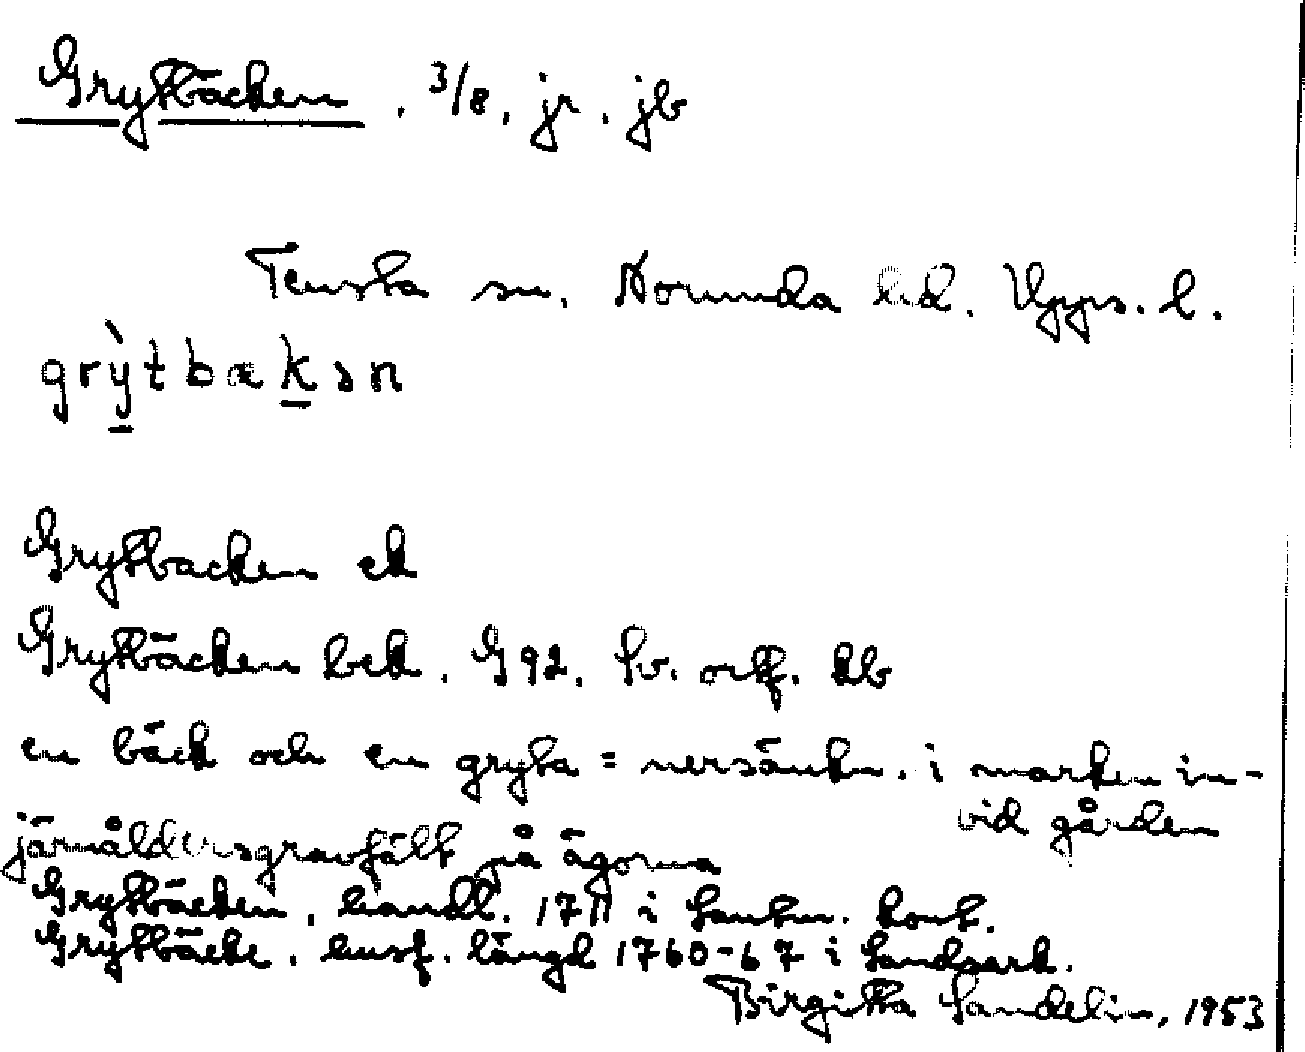 Grytbäcken, 3/8, jr, jb
Tensta sn. Norunda hd. Upps. l.
grỳtbækən
Grytbacken ek
Grytbäcken bek. G 92. Sv. ortf. kb
en bäck och en gryta = nersänkn. i marken in-
vid gården
järnåldersgravfält på ägorna
Grytbäcken, handl. 1711 i Lantm. kont.
Grytbäcke, husf. längd 1760-67 i Landsark.
Birgitta Sandelin, 1953